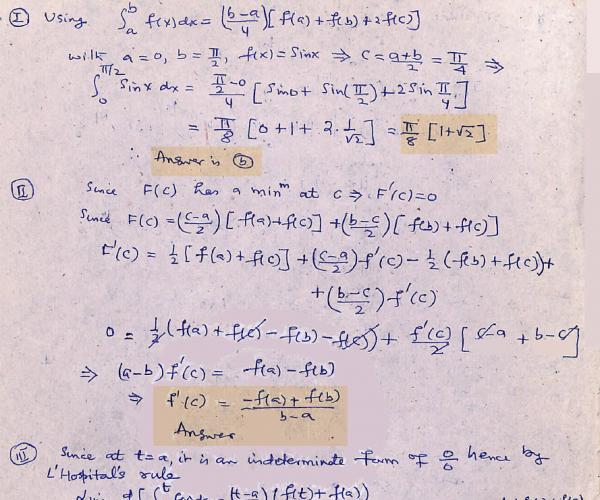 I Using ∫_a^b f(x)dx = (b-a)/4 [f(a) + f(b) + 2f(c)]
with a=0, b=π/2, f(x)=Sinx ⇒ c = (a+b)/2 = π/4 ⇒
∫_0^{π/2} Sinx dx = (π/2 - 0)/4 [Sin0 + Sin(π/2) + 2 Sin π/4]
= π/8 [0+1+ 2. 1/√2] = π/8 [1+√2]
∴ Answer is (b)
II Since F(c) has a min^m at c ⇒ F'(c)=0
Since F(c) = ((c-a)/2) [f(a)+f(c)] + ((b-c)/2) [f(b)+f(c)]
F'(c) = 1/2 [f(a)+f(c)] + ((c-a)/2) f'(c) - 1/2 (f(b)+f(c)) +
+ ((b-c)/2) f'(c)
0 = 1/2 (f(a) + f(c) - f(b) - f(c)) + f'(c)/2 [c-a + b-c]
⇒ (a-b) f'(c) = f(a) - f(b)
⇒ f'(c) = (-f(a) + f(b))/(b-a)
Answer
III Since at t=a, it is an indeterminate form of 0/0 hence by
L'Hopital's rule